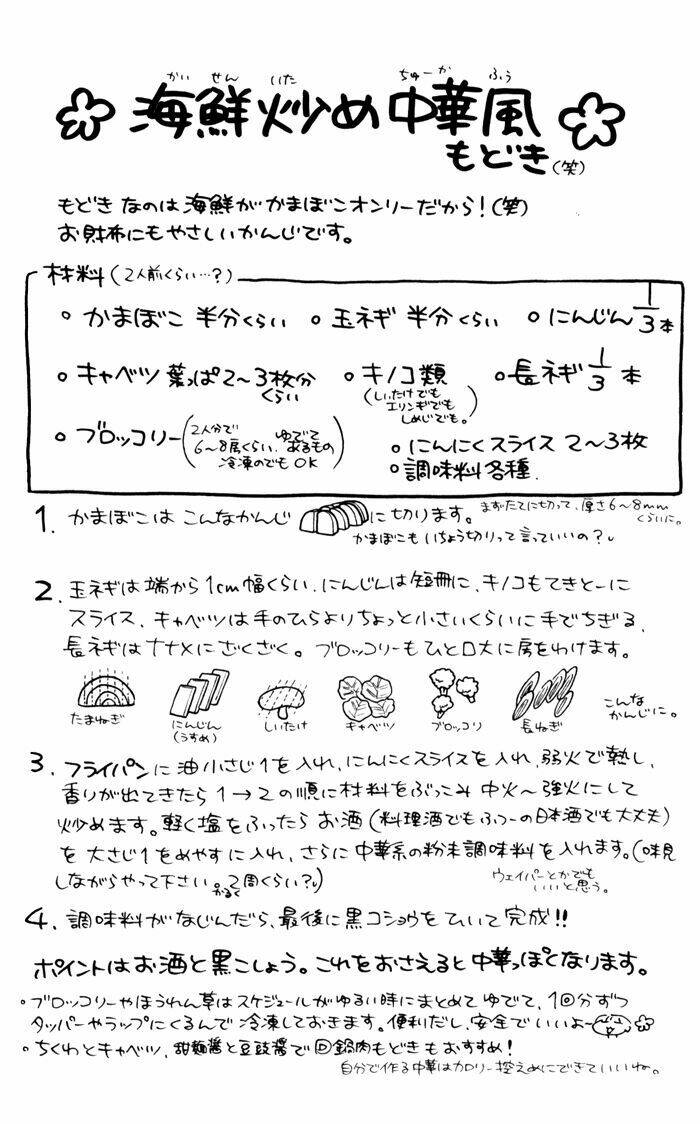 かい せん いた ちゅーか ふう
海鮮炒め中華風
もどき(笑)
もどきなのは海鮮がかまぼこオンリーだから!(笑)
お財布にもやさしいかんじです。
材料(2人前くらい…?)
。かまぼこ 半分くらい 。玉ネギ 半分くらい 。にんじん1/3本
。キャベツ 葉っぱ2〜3枚分くらい 。キノコ類(しいたけでもエリンギでもしめじでも。) 。長ネギ1/3本
。ブロッコリー(2人分で6〜8房くらい、ゆでてあるもの 冷凍のでもOK)
。にんにくスライス 2〜3枚
。調味料各種.
1. かまぼこは こんなかんじ に切ります。まずたてに切って、厚さ6〜8mmくらいに。
かまぼこもいちょう切りって言っていいの?
2. 玉ネギは端から1cm幅くらい、にんじんは短冊に、キノコもてきとーに
スライス、キャベツは手のひらよりちょっと小さいくらいに手でちぎる、
長ネギはナナメにざくざく。ブロッコリーもひと口大に房をわけます。
たまねぎ にんじん(うすめ) しいたけ キャベツ ブロッコリ 長ねぎ こんなかんじに。
3. フライパンに油小さじ1を入れ、にんにくスライスを入れ、弱火で熱し、
香りが出てきたら1→2の順に材料をぶっこみ 中火〜強火にして
炒めます。軽く塩をふったらお酒(料理酒でもふつーの日本酒でも大丈夫)
を大さじ1をめやすに入れ、さらに中華系の粉末調味料を入れます。(味見
しながらやって下さい。かるく2周くらい?)
ウェイパーとかでもいいと思う。
4. 調味料がなじんだら、最後に黒コショウをひいて完成!!
ポイントはお酒と黒こしょう。これをおさえると中華っぽくなります。
。ブロッコリーやほうれん草はスケジュールがゆるい時にまとめてゆでて、1回分ずつ
タッパーやラップにくるんで冷凍しておきます。便利だし、安全でいいよー
。ちくわとキャベツ、甜麺醤と豆豉醤で回鍋肉もどきもおすすめ!
自分で作る中華はカロリー控えめにできていいね。